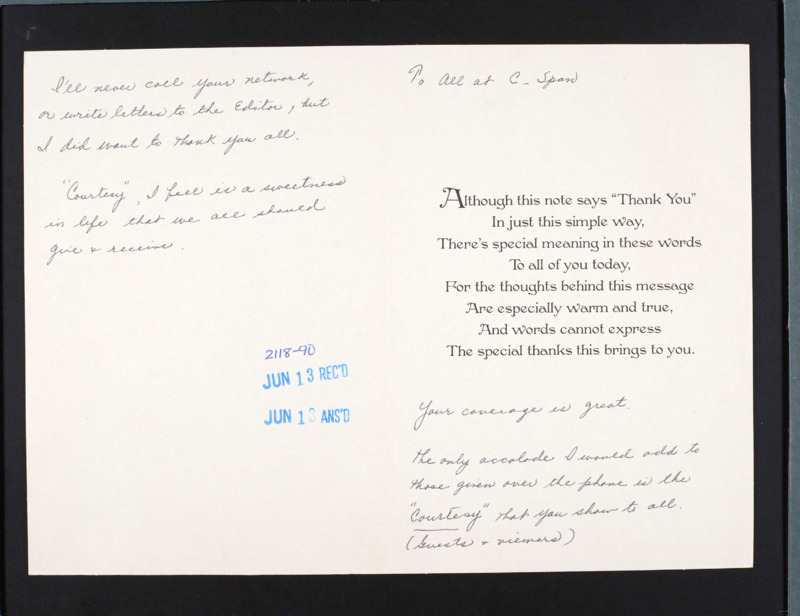 I'll never call your network,
or write letters to the Editor, but
I did want to thank you all.
"Courtesy", I feel is a sweetness
in life that we all should
give & receive.
2118-90
JUN 13 REC'D
JUN 13 ANS'D
To All at C-Span
Although this note says “Thank You”
In just this simple way,
There's special meaning in these words
To all of you today,
For the thoughts behind this message
Are especially warm and true,
And words cannot express
The special thanks this brings to you.
Your coverage is great.
The only accolade I would add to
those given over the phone is the
"Courtesy" that you show to all.
(Guests & viewers)